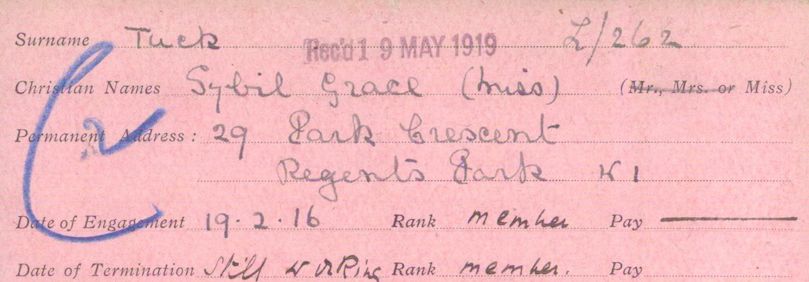 Surname Tuck Rec'd 19 MAY 1919 L/262
Christian Names Sybil Grace (Miss) (Mr., Mrs. or Miss)
2
Permanent Address: 29 Park Crescent
Regents Park W1
Date of Engagement 19.2.16 Rank member Pay
Date of Termination Still working Rank member. Pay